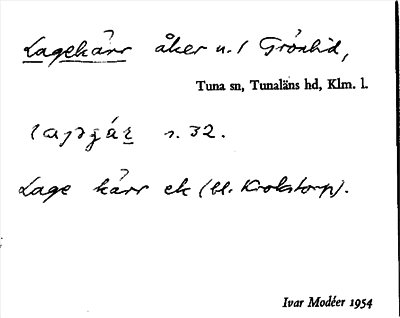 Lagekärr åker u. / Grönlid,
Tuna sn, Tunaläns hd, Klm. l.
s. 32.
Lage kärr ek (bl. Krokstorp).
Ivar Modéer 1954